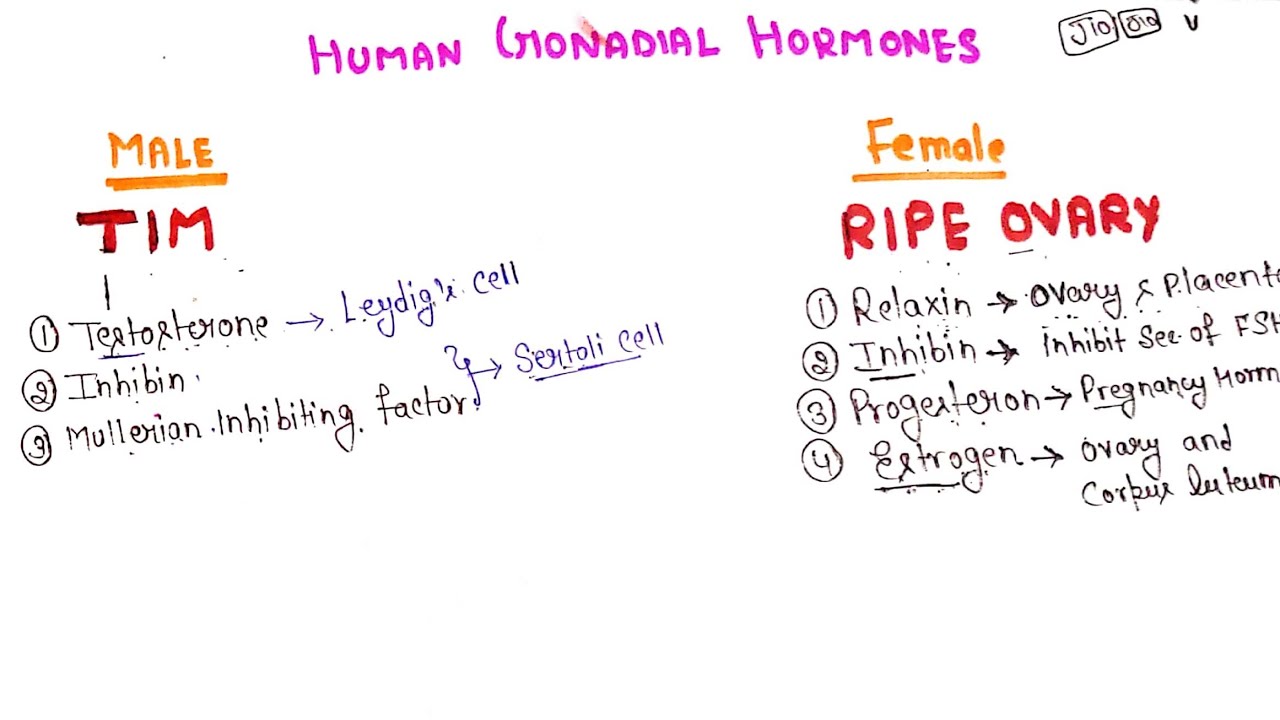 HUMAN GONADIAL HORMONES
Jio Jio V
MALE
TIM
① Testosterone → Leydig's cell
② Inhibin
③ Mullerian Inhibiting factor
→ Sertoli cell
Female
RIPE OVARY
① Relaxin → Ovary & Placenta
② Inhibin → Inhibit Sec. of FSH
③ Progesteron → Pregnancy Horm
④ Estrogen → Ovary and
Corpus luteum